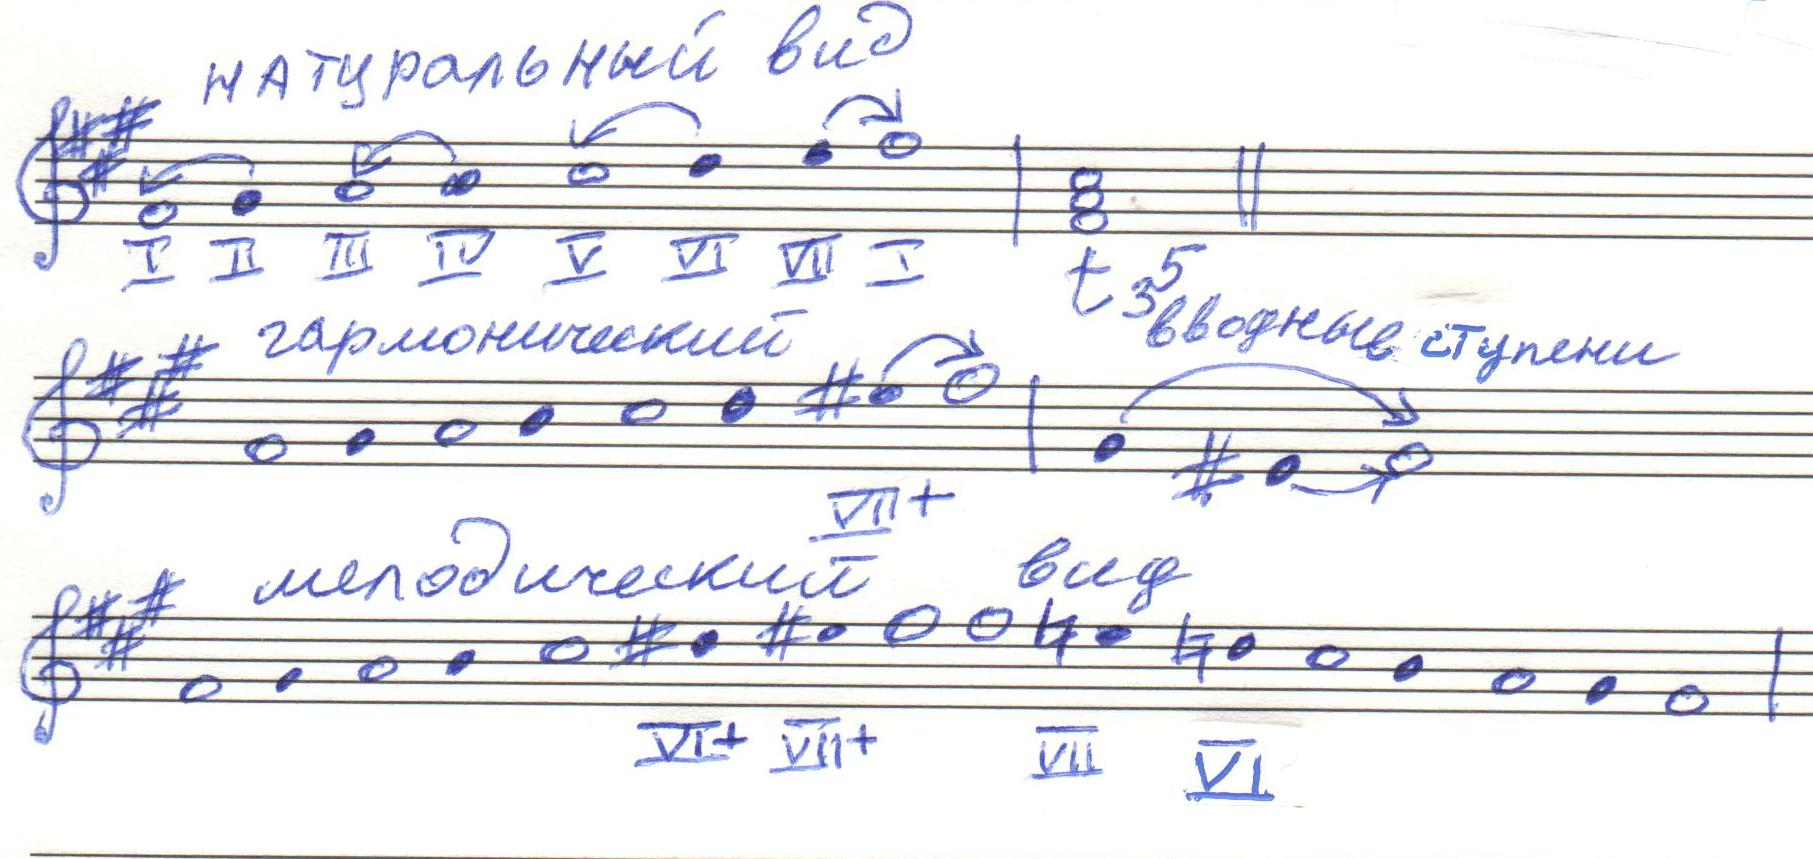 натуральный вид
I II III IV V VI VII I
t 5 3
гармонический вводные ступени
VII+
мелодический вид
VI+ VII+ VII VI